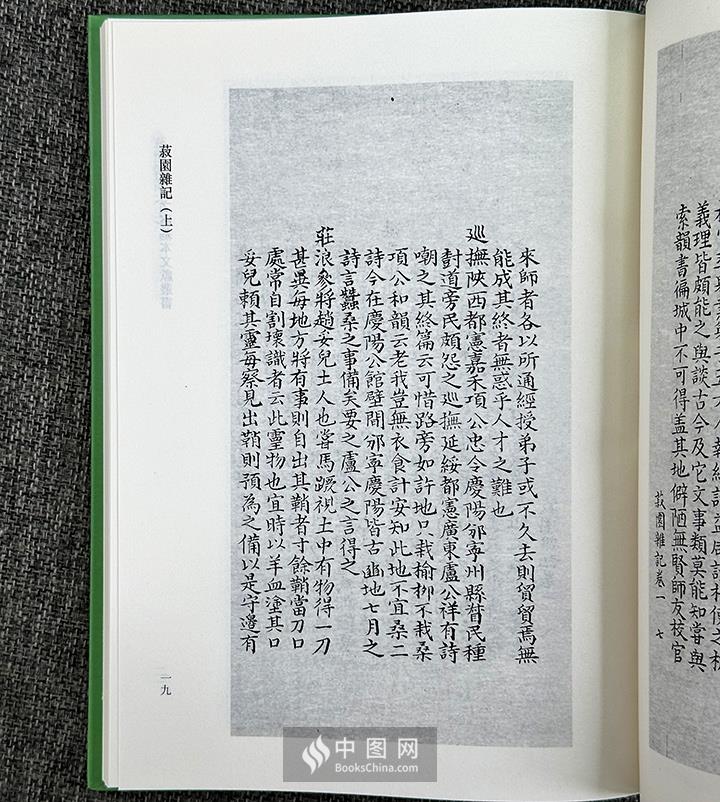 義理皆頗能之與談古今及它文事類莫能知嘗與
索韻書徧城中不可得盖其地僻陋無賢師友校官
菽園雜記卷一 七
來師者各以所通經授弟子或不久去則貿貿焉無
能成其終者無惑乎人才之難也
巡撫陝西都憲嘉禾項公忠令慶陽邠寧州縣督民種
封道旁民頗怨之巡撫延綏都憲廣東盧公祥有詩
嘲之其終篇云可惜路旁如許地只栽榆柳不栽桑
項公和韻云老我豈無衣食計安知此地不宜桑二
詩今在慶陽公館壁間邠寧慶陽皆古豳地七月之
詩言蠶桑之事備矣要之盧公之言得之
莊浪參將趙妥兒土人也嘗馬蹶視土中有物得一刀
甚異每地方將有事則自出其鞘者寸餘鞘當刀口
處常自割壞識者云此靈物也宜時以羊血塗其口
妥兒頼其靈每察見出鞘則預為之備以是守邊有
菽園雜記（上）
一九
中图网
BooksChina.com